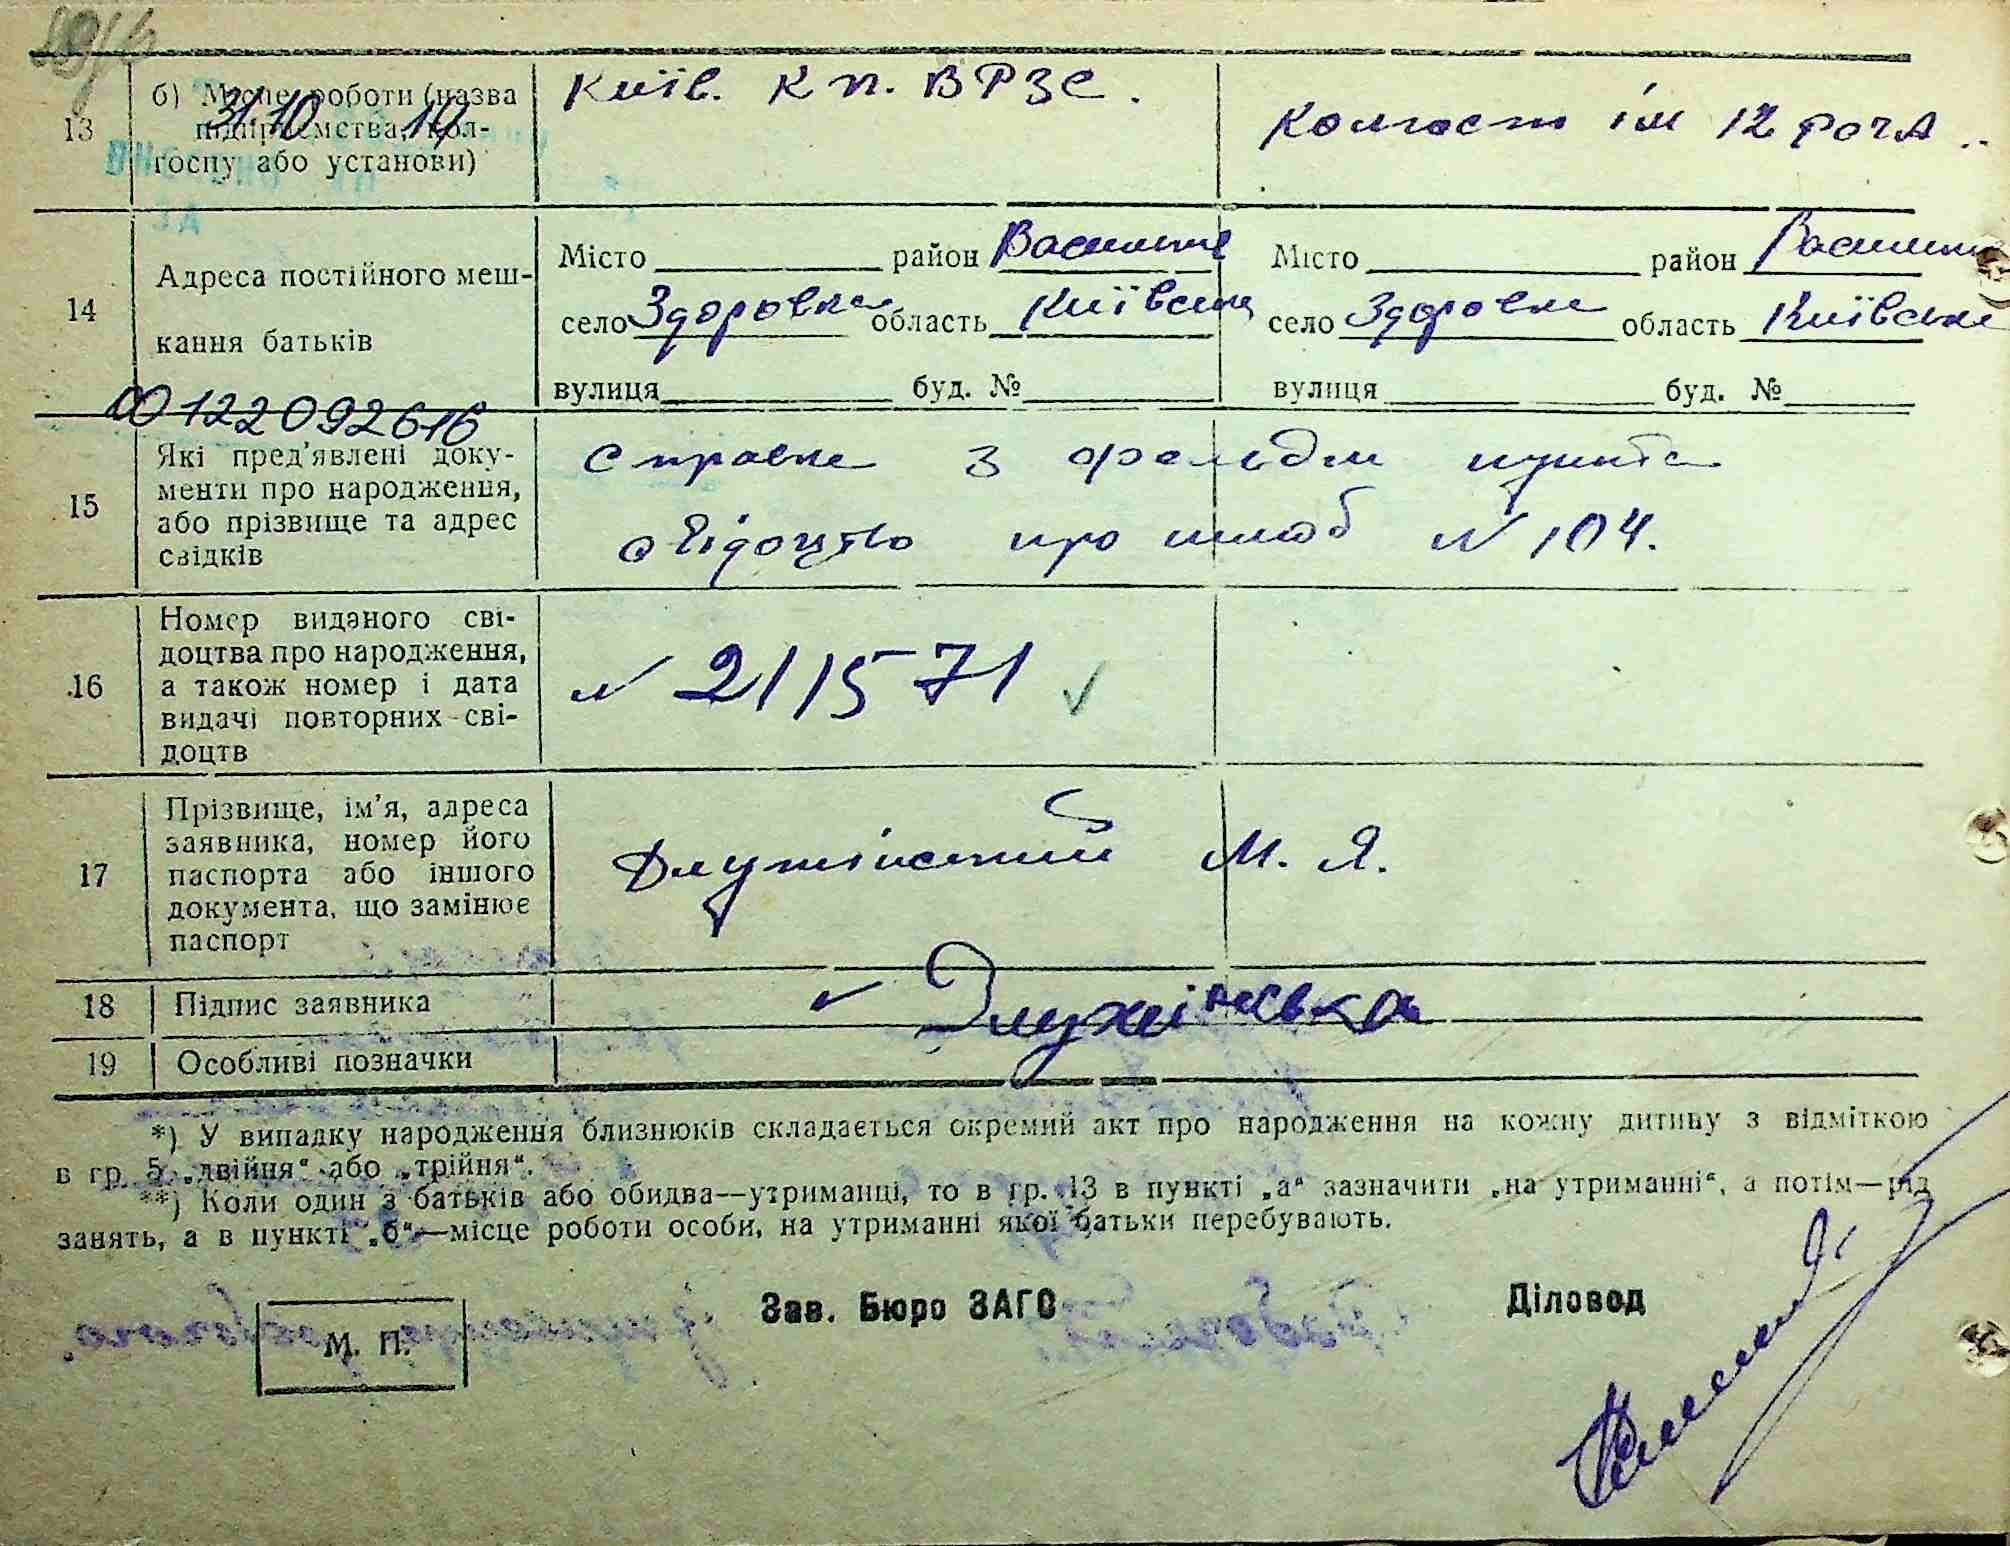 13
б) Місце роботи (назва
підприємства, кол-
госпу або установи)
31.10 19
Київ. К п. ВРЗС.
Колгосп ім 12 роч
14
Адреса постійного меш-
кання батьків
Місто район Васильк
село Здоровка область Київська
вулиця буд. №
Місто район Васильк
село Здоровка область Київська
вулиця буд. №
00122092616
15
Які пред'явлені доку-
менти про народження,
або прізвище та адрес
свідків
справка з фельдш пункта
свідоцтво про шлюб N 104.
16
Номер виданого сві-
доцтва про народження,
а також номер і дата
видачі повторних сві-
доцтв
N 211571
17
Прізвище, ім'я, адреса
заявника, номер його
паспорта або іншого
документа, що замінює
паспорт
Длужінський М. Я.
18
Підпис заявника
Длужінська
19
Особливі позначки
*) У випадку народження близнюків складається окремий акт про народження на кожну дитину з відміткою
в гр. 5 „двійня“ або „трійня“.
**) Коли один з батьків або обидва—утриманці, то в гр. 13 в пункті „а“ зазначити „на утриманні“, а потім—рід
занять, а в пункті „б“—місце роботи особи, на утриманні якої батьки перебувають.
М. П.
Зав. Бюро ЗАГС
Діловод